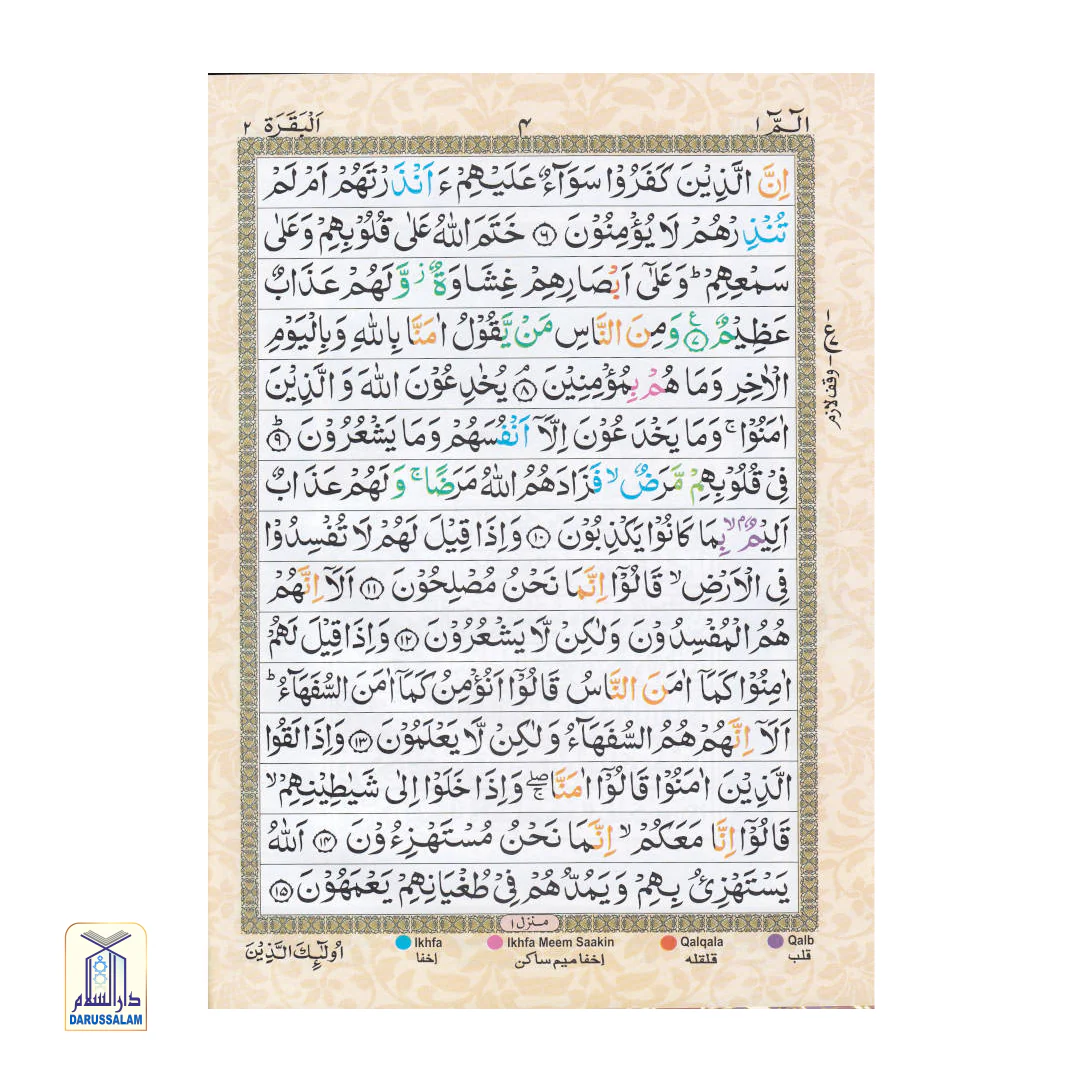 الٓمّٓ ١
۴
اَلْبَقَرَة ٢
اِنَّ الَّذِيْنَ كَفَرُوْا سَوَآءٌ عَلَيْهِمْ ءَ اَنْذَرْتَهُمْ اَمْ لَمْ
تُنْذِرْهُمْ لَا يُؤْمِنُوْنَ ۶ خَتَمَ اللّٰهُ عَلٰى قُلُوْبِهِمْ وَعَلٰى
سَمْعِهِمْ ؕ وَعَلٰٓى اَبْصَارِهِمْ غِشَاوَةٌ ز وَّلَهُمْ عَذَابٌ
عَظِيْمٌ ۷ ع وَمِنَ النَّاسِ مَنْ يَّقُوْلُ اٰمَنَّا بِاللّٰهِ وَبِالْيَوْمِ
الْاٰخِرِ وَمَا هُمْ بِمُؤْمِنِيْنَ ۸ۘ يُخٰدِعُوْنَ اللّٰهَ وَالَّذِيْنَ
اٰمَنُوْا ۚ وَمَا يَخْدَعُوْنَ اِلَّآ اَنْفُسَهُمْ وَمَا يَشْعُرُوْنَ ۹ؕ
فِىْ قُلُوْبِهِمْ مَّرَضٌ ۙ فَزَادَهُمُ اللّٰهُ مَرَضًا ۚ وَلَهُمْ عَذَابٌ
اَلِيْمٌۢ ۙ بِمَا كَانُوْا يَكْذِبُوْنَ ۱۰ وَاِذَا قِيْلَ لَهُمْ لَا تُفْسِدُوْا
فِى الْاَرْضِ ۙ قَالُوْٓا اِنَّمَا نَحْنُ مُصْلِحُوْنَ ۱۱ اَلَآ اِنَّهُمْ
هُمُ الْمُفْسِدُوْنَ وَلٰكِنْ لَّا يَشْعُرُوْنَ ۱۲ وَاِذَا قِيْلَ لَهُمْ
اٰمِنُوْا كَمَآ اٰمَنَ النَّاسُ قَالُوْٓا اَنُؤْمِنُ كَمَآ اٰمَنَ السُّفَهَآءُ ؕ
اَلَآ اِنَّهُمْ هُمُ السُّفَهَآءُ وَلٰكِنْ لَّا يَعْلَمُوْنَ ۱۳ وَاِذَا لَقُوا
الَّذِيْنَ اٰمَنُوْا قَالُوْٓا اٰمَنَّا ۖۚ وَاِذَا خَلَوْا اِلٰى شَيٰطِيْنِهِمْ ۙ
قَالُوْٓا اِنَّا مَعَكُمْ ۙ اِنَّمَا نَحْنُ مُسْتَهْزِءُوْنَ ۱۴ اَللّٰهُ
يَسْتَهْزِئُ بِهِمْ وَيَمُدُّهُمْ فِىْ طُغْيَانِهِمْ يَعْمَهُوْنَ ۱۵
وقف لازم
منزل ١
Ikhfa
Ikhfa Meem Saakin
Qalqala
Qalb
إخفا
إخفا ميم ساكن
قلقله
قلب
اُولٰٓئِكَ الَّذِيْنَ
دارالسلام
DARUSSALAM